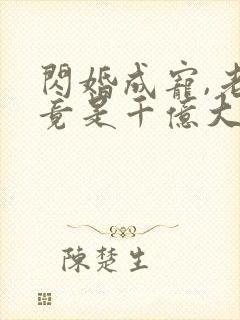 閃婚成寵,老
竟是千億大
陳楚生